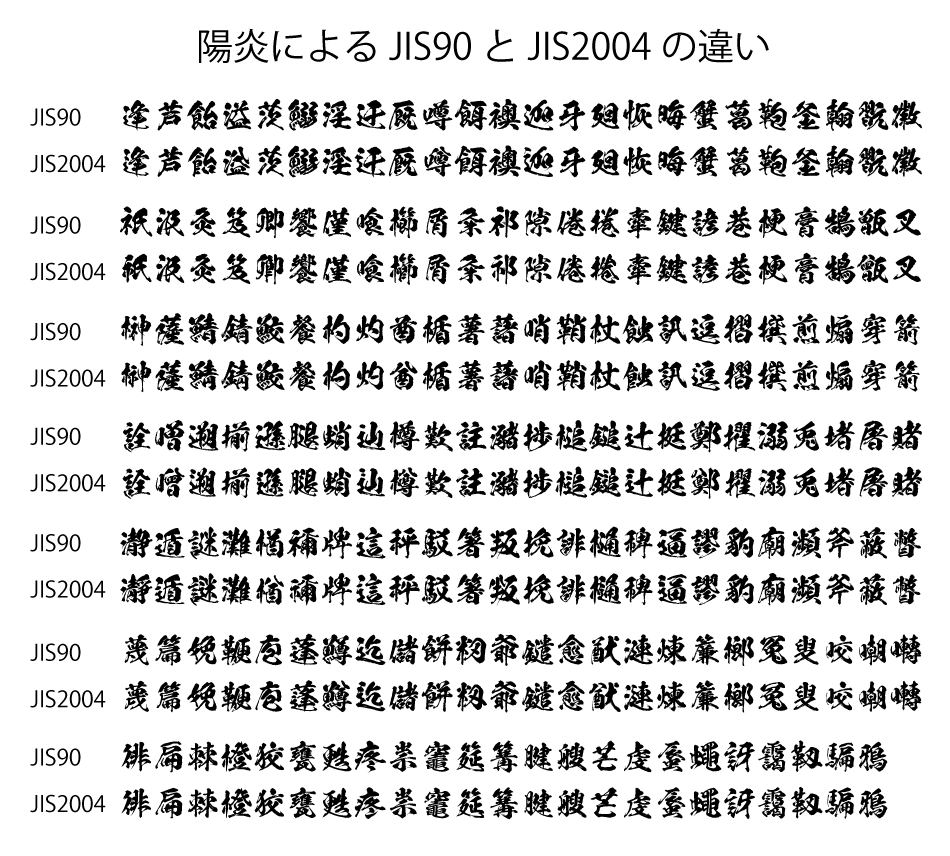 陽炎による JIS90 と JIS2004 の違い
JIS90 逢芦飴溢茨鰯淫迂厩噂餌襖迦牙廻恢晦蟹葛鞄釜翰翫徽
JIS2004 逢芦飴溢茨鰯淫迂厩噂餌襖迦牙廻恢晦蟹葛鞄釜翰翫徽
JIS90 祇汲灸笈卿饗僅喰櫛屑粂祁隙倦捲牽鍵諺巷梗膏鵠甑叉
JIS2004 祇汲灸笈卿饗僅喰櫛屑粂祁隙倦捲牽鍵諺巷梗膏鵠甑叉
JIS90 榊薩鯖錆鮫餐杓灼酋楯薯藷哨鞘杖蝕訊逗摺撰煎煽穿箭
JIS2004 榊薩鯖錆鮫餐杓灼酋楯薯藷哨鞘杖蝕訊逗摺撰煎煽穿箭
JIS90 詮噌遡揃遜腿蛸辿樽歎註瀦捗槌鎚辻挺鄭擢溺兎堵屠賭
JIS2004 詮噌遡揃遜腿蛸辿樽歎註瀦捗槌鎚辻挺鄭擢溺兎堵屠賭
JIS90 瀞遁謎灘楢禰牌這秤駁箸叛挽誹樋稗逼謬豹廟瀕斧蔽瞥
JIS2004 瀞遁謎灘楢禰牌這秤駁箸叛挽誹樋稗逼謬豹廟瀕斧蔽瞥
JIS90 蔑篇娩鞭庖蓬鱒迄儲餅籾爺鑓愈猷漣煉簾榔冤叟咬嘲囀
JIS2004 蔑篇娩鞭庖蓬鱒迄儲餅籾爺鑓愈猷漣煉簾榔冤叟咬嘲囀
JIS90 徘扁棘橙狡甕甦疼祟竈筵篝腱艘芒虔蜃蠅訝靄靱騙鴉
JIS2004 徘扁棘橙狡甕甦疼祟竈筵篝腱艘芒虔蜃蠅訝靄靱騙鴉